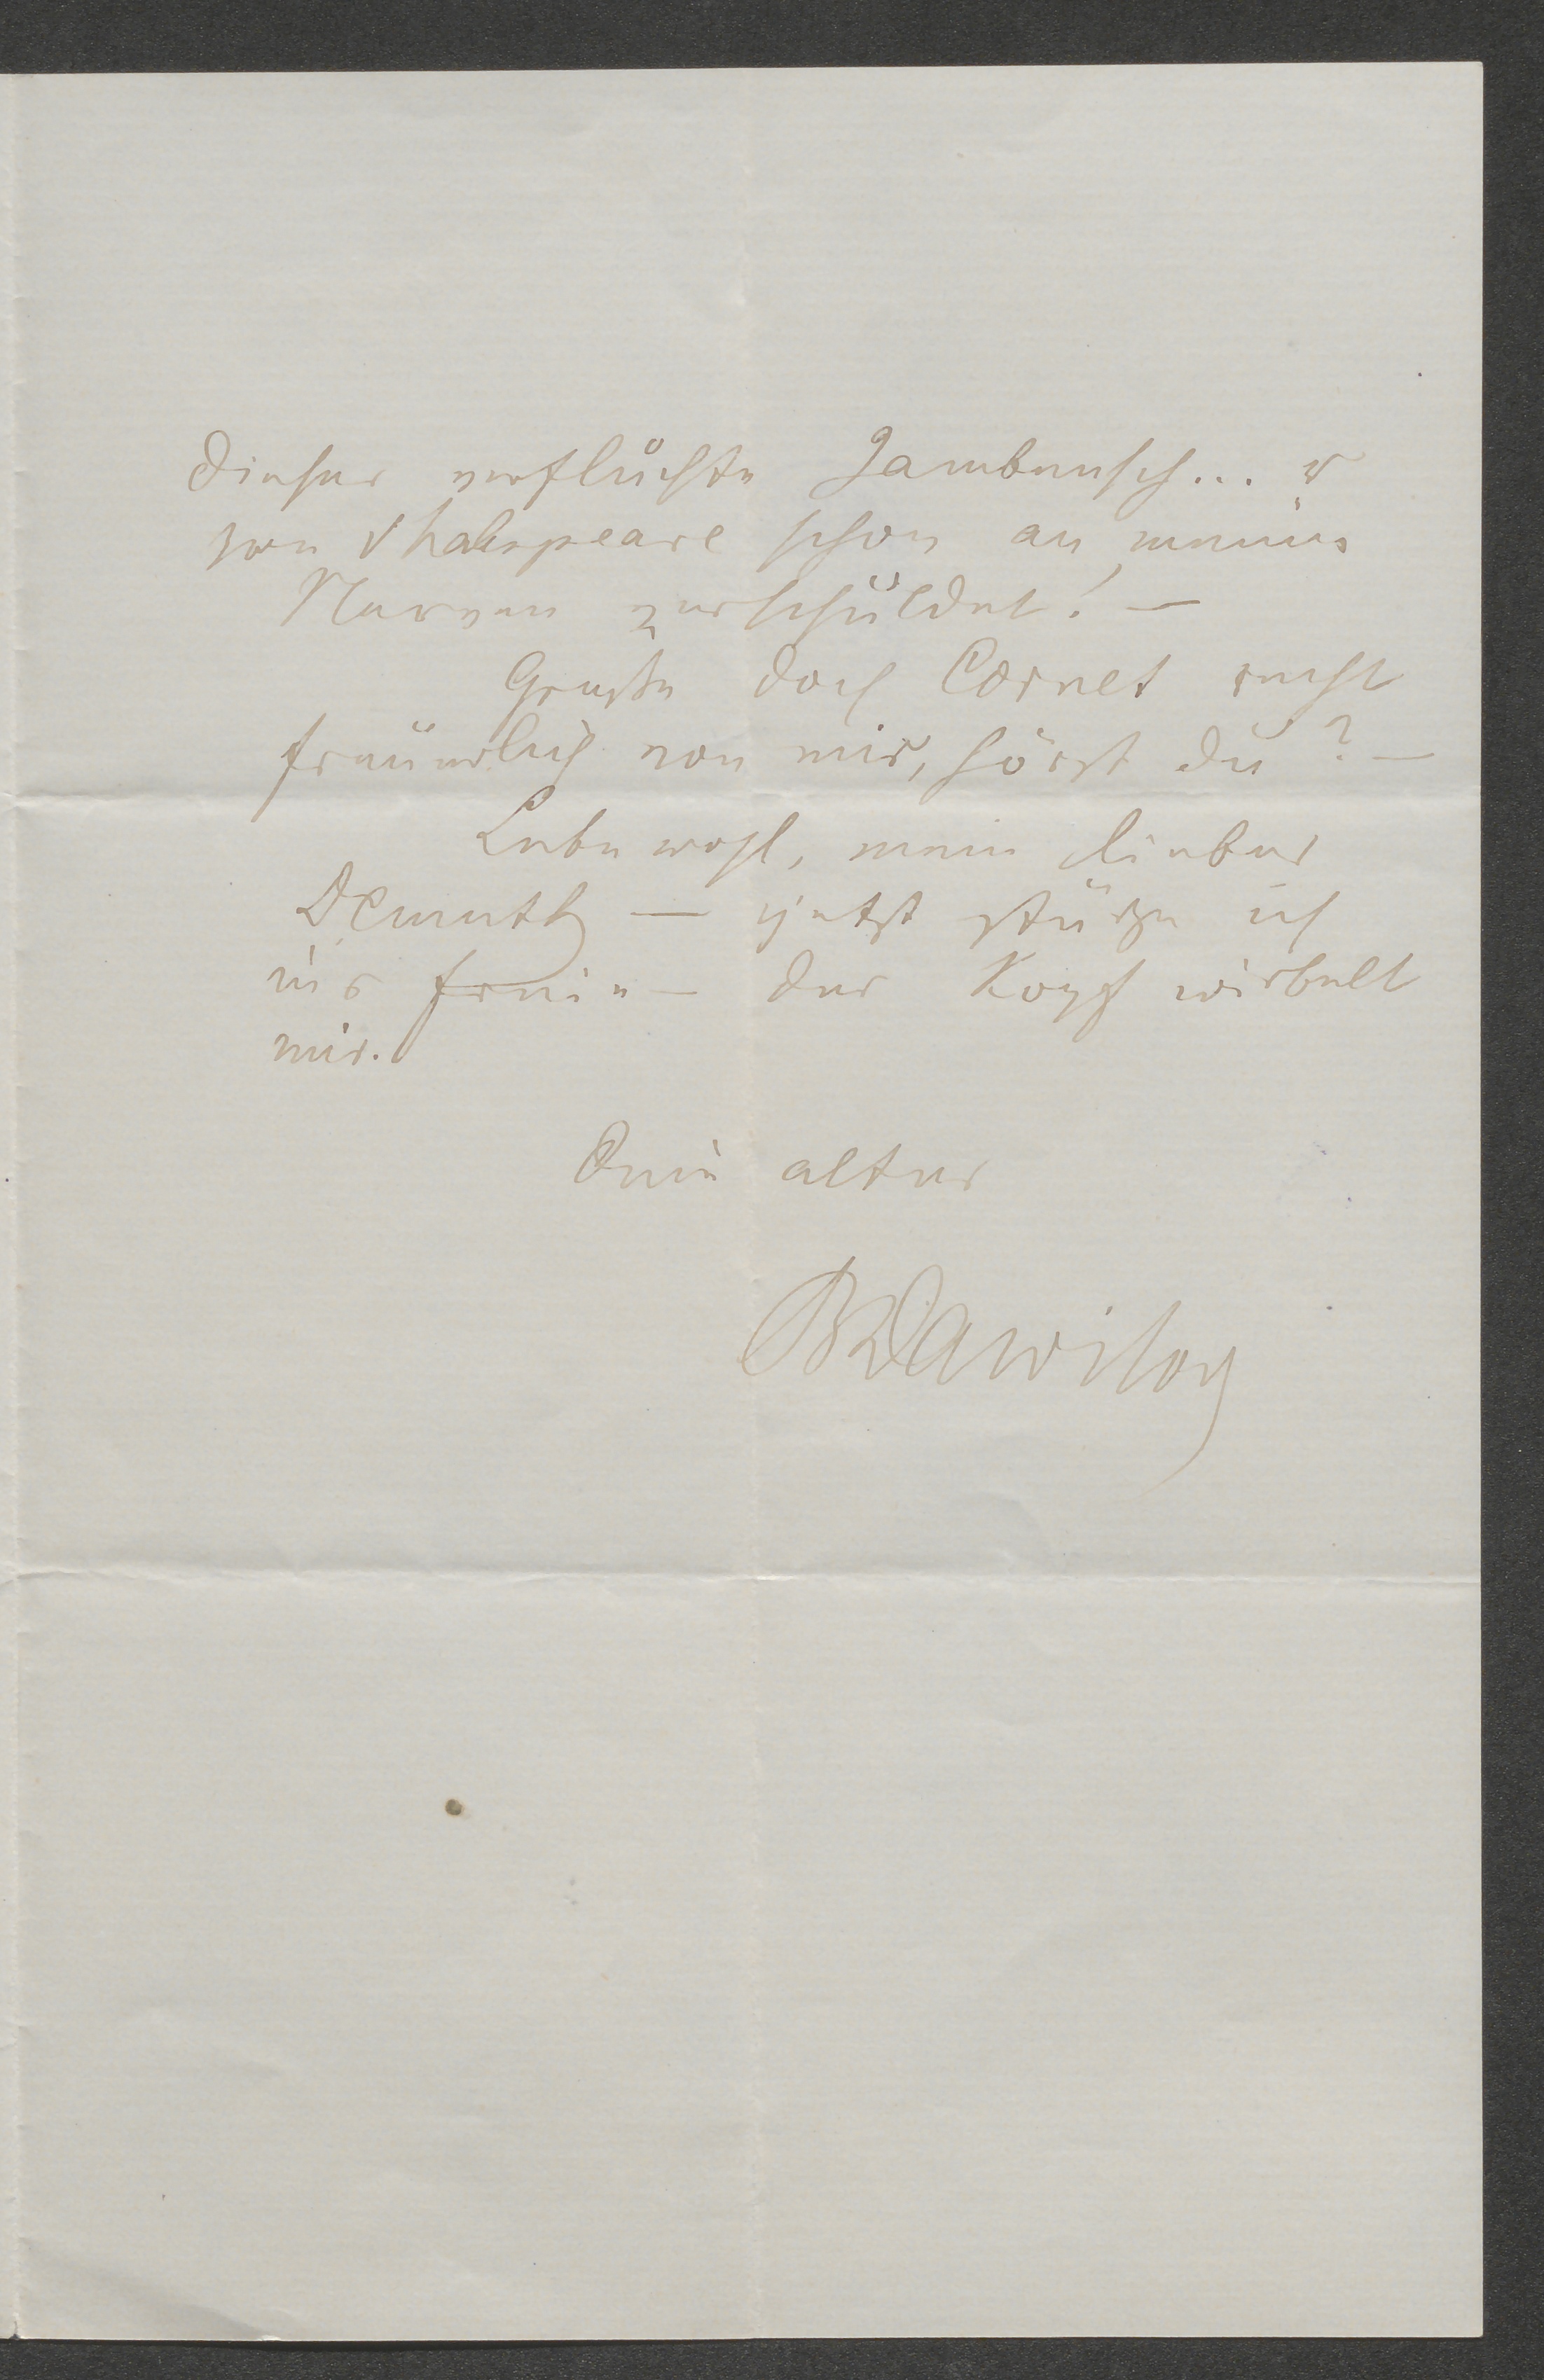 Dieser verfluchte Jambensch... r
von Shakspeare schon an meine
Nerven verschuldet! —
Grüße doch Cornet recht
freundlich von mir, hörst du? —
Lebe wohl, mein lieber
Demuth — jetzt stürze ich
ins freie — der Kopf wirbelt
mir.
Dein alter
BDawison